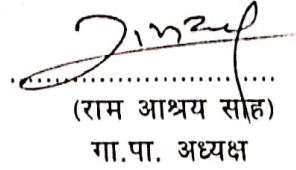 (राम आश्रय साह)
गा.पा. अध्यक्ष